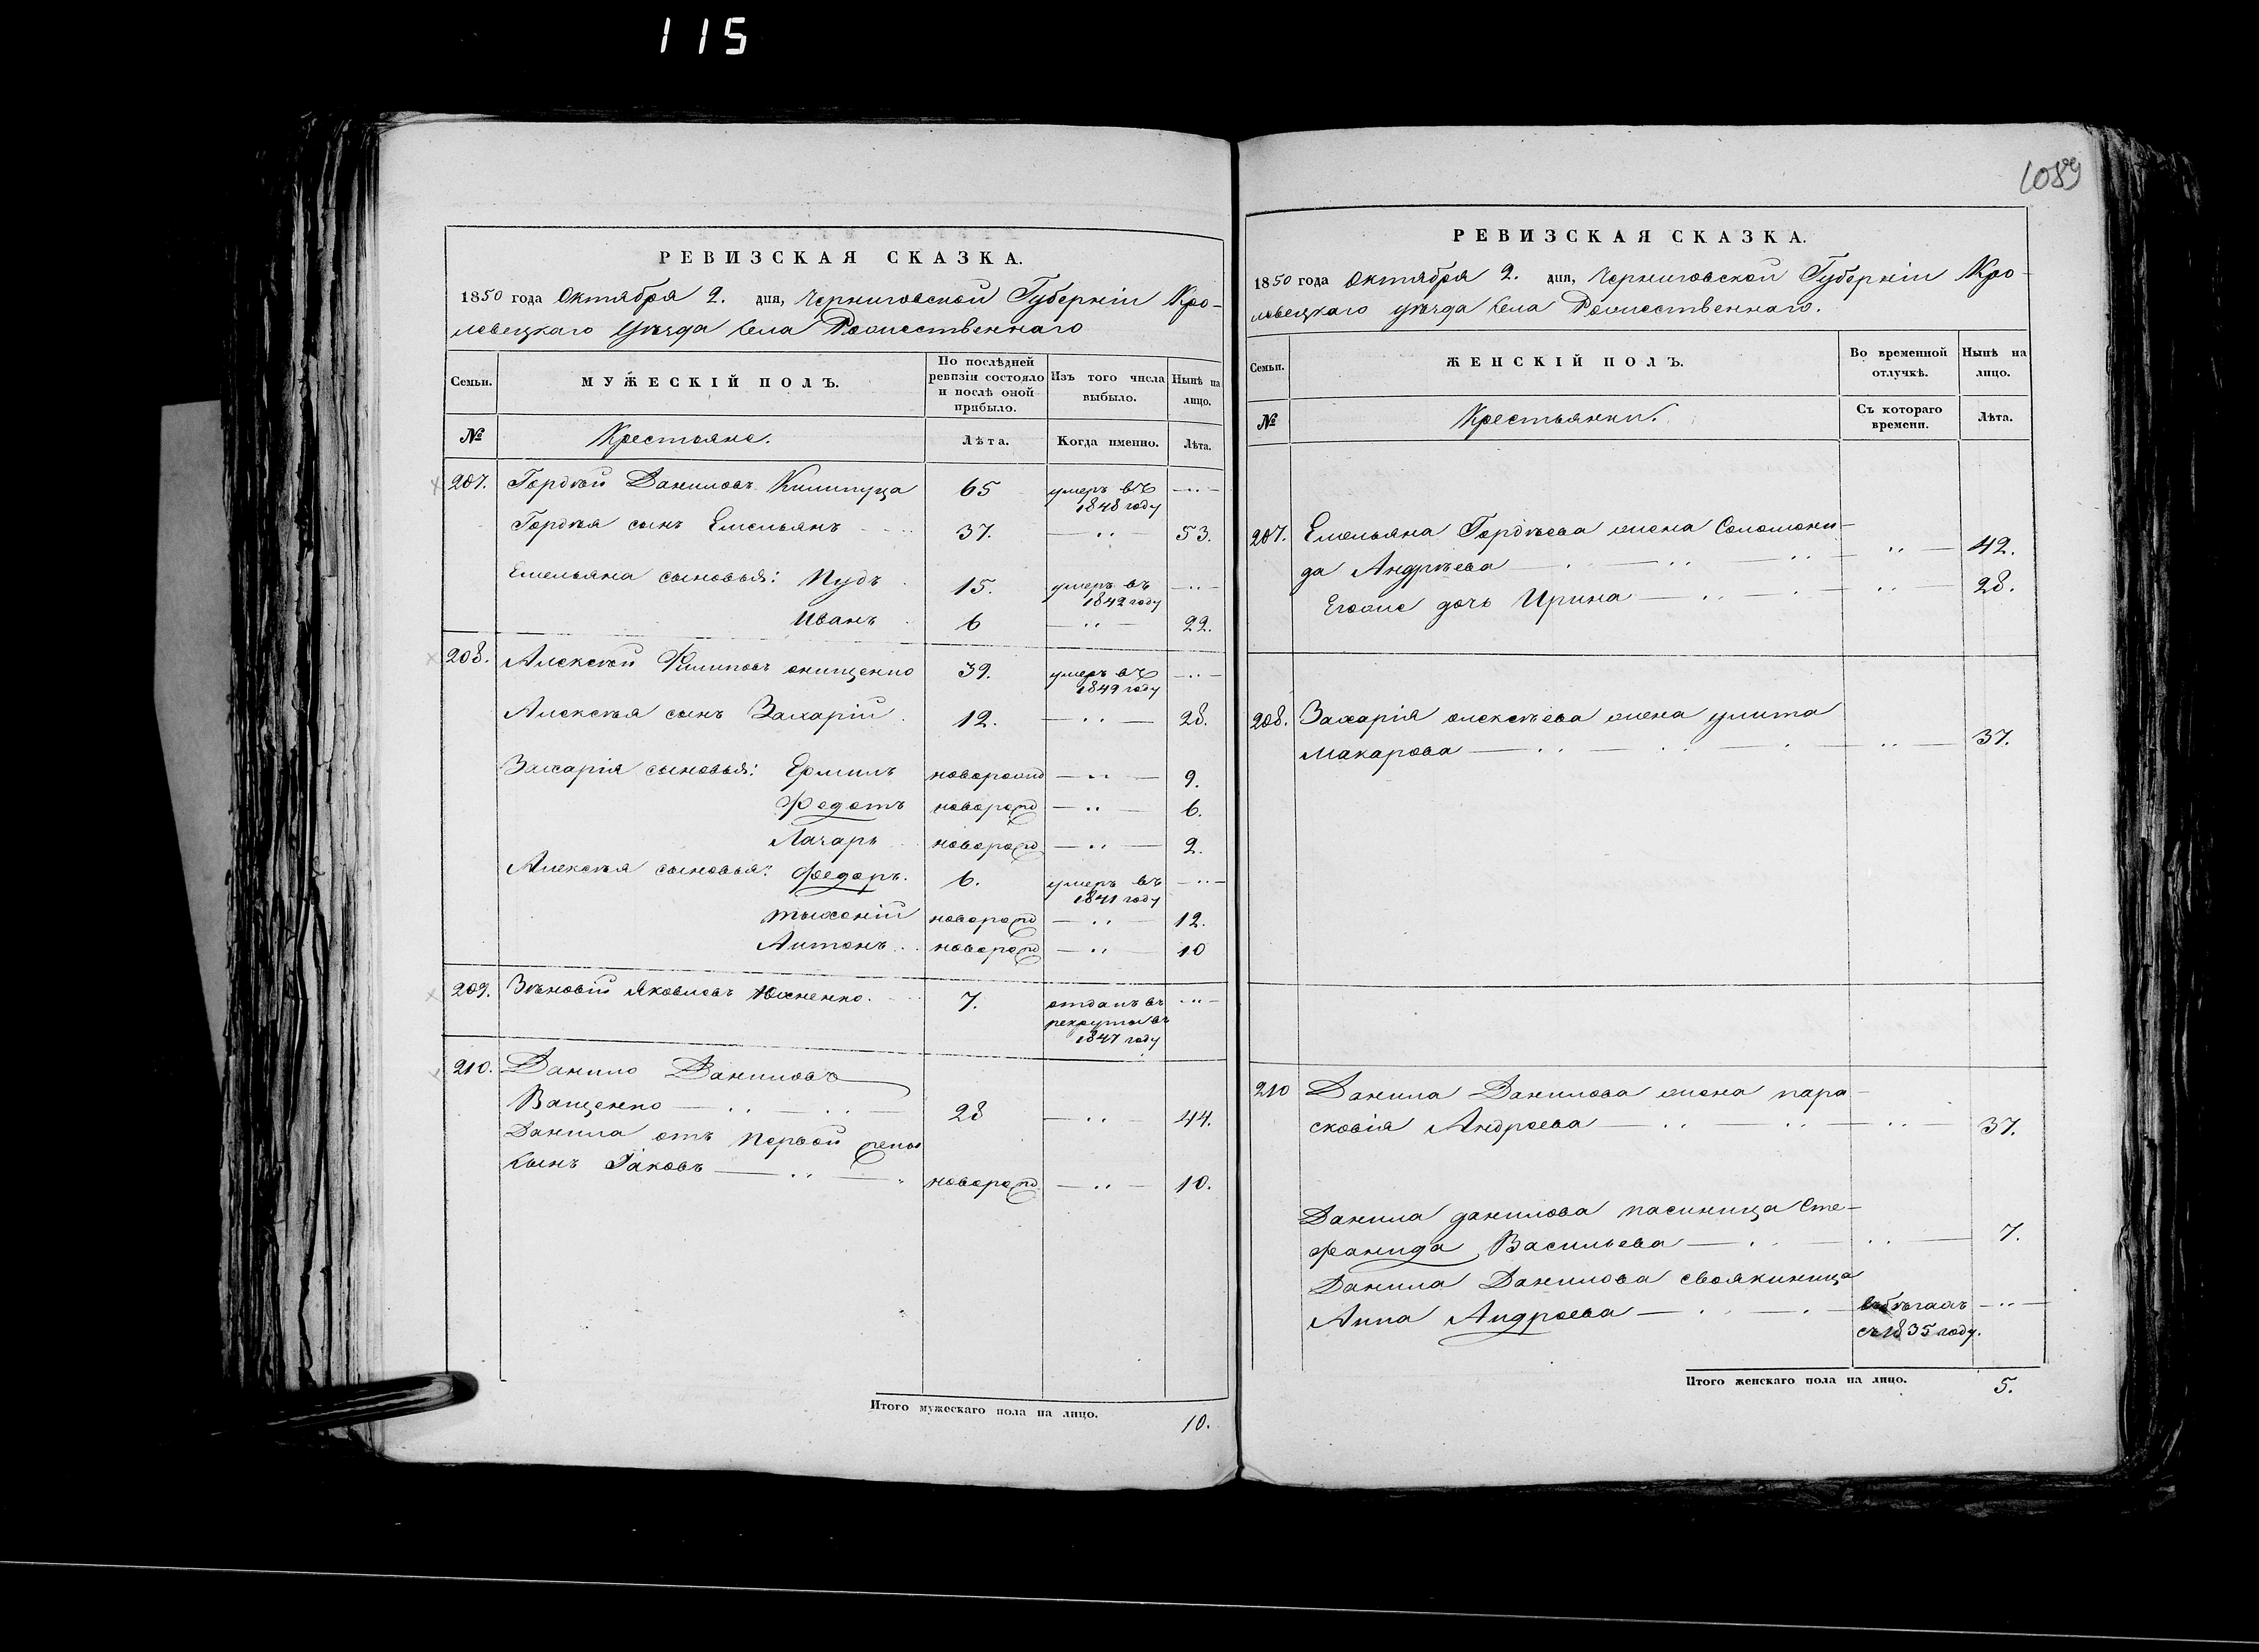 115
1089
РЕВИЗСКАЯ СКАЗКА.
1850 года Октября 2. дня, Черниговской Губерніи Кро-
левецкаго Уѣзда села Рожественнаго
Семьи.
МУЖЕСКІЙ ПОЛЪ.
По послѣдней ревизіи состояло и послѣ оной прибыло.
Изъ того числа выбыло.
Нынѣ на лицо.
№
Крестьяне.
Лѣта.
Когда именно.
Лѣта.
207. Гордѣй Даниловъ 65 умеръ въ 1848 году
Гордѣя сынъ Емельянъ 37. 53.
Емельяна сыновья: Пудъ 15. умеръ въ 1842 году
Иванъ 6 22.
208. Алексѣй Филиповъ онищенко 39. умеръ въ 1849 году
Алексѣя сынъ Захарій 12. 28.
Захарія сыновья: Ермилъ оворожд 9.
Федотъ новорожд 6.
Лазарь новорожд 2.
Алексѣя сыновья: Федоръ. 6. умеръ въ 1841 году
тыхоній новорожд 12.
Антонъ новорожд 10
209. Зѣновій Яковлевъ Юхненко. 7. отданъ въ рекруты въ 1847 году
210. Данило Даниловъ
Ващенко 28 44.
Данила отъ первой жены
сынъ Іаковъ новорожд 10.
Итого мужескаго пола на лицо. 10.
РЕВИЗСКАЯ СКАЗКА.
1850 года Октября 2. дня, Черниговской Губерніи Кро-
левецкаго уѣзда села Рожественнаго.
Семьи.
ЖЕНСКІЙ ПОЛЪ.
Во временной отлучкѣ.
Нынѣ на лицо.
№
Крестьянки.
Съ котораго времени.
Лѣта.
207. Емельяна Гордѣева жена Соломони-
да Андрѣева 42.
Егоже дочь Ирина 28.
208. Захарія олексѣева жена улита
Макарова 37.
210 Данила Данилова жена пара-
сковія Андреева 37.
Данила данилова пасиница Сте-
фанида Васильева 7.
Данила Данилова своякиница
Анна Андреева въ бѣгахъ
съ 1835 году.
Итого женскаго пола на лицо. 5.